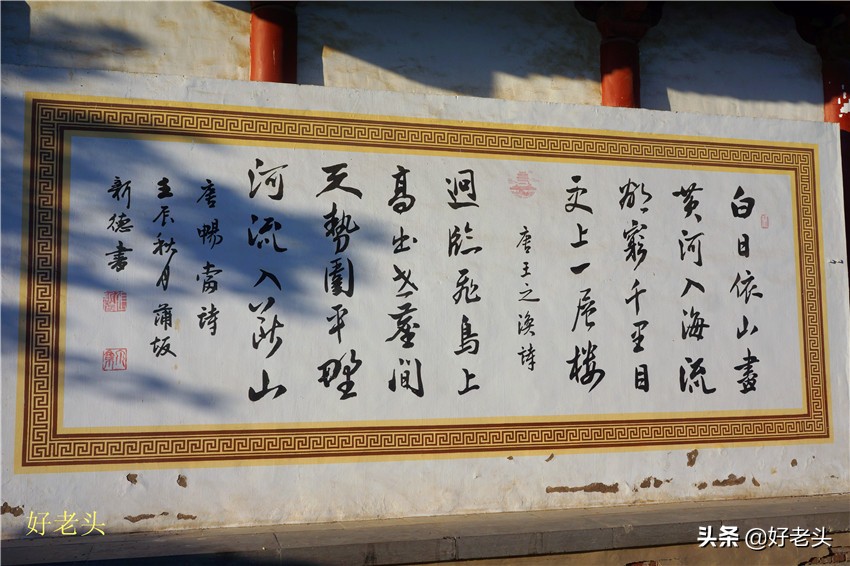 白日依山盡
黄河入海流
欲窮千里目
更上一层楼
唐王之涣詩
迥臨飛鳥上
高出世塵間
天勢圍平野
河流入斷山
唐暢當詩
壬辰秋月蒲坂
新德書
好老头
头条 @好老头